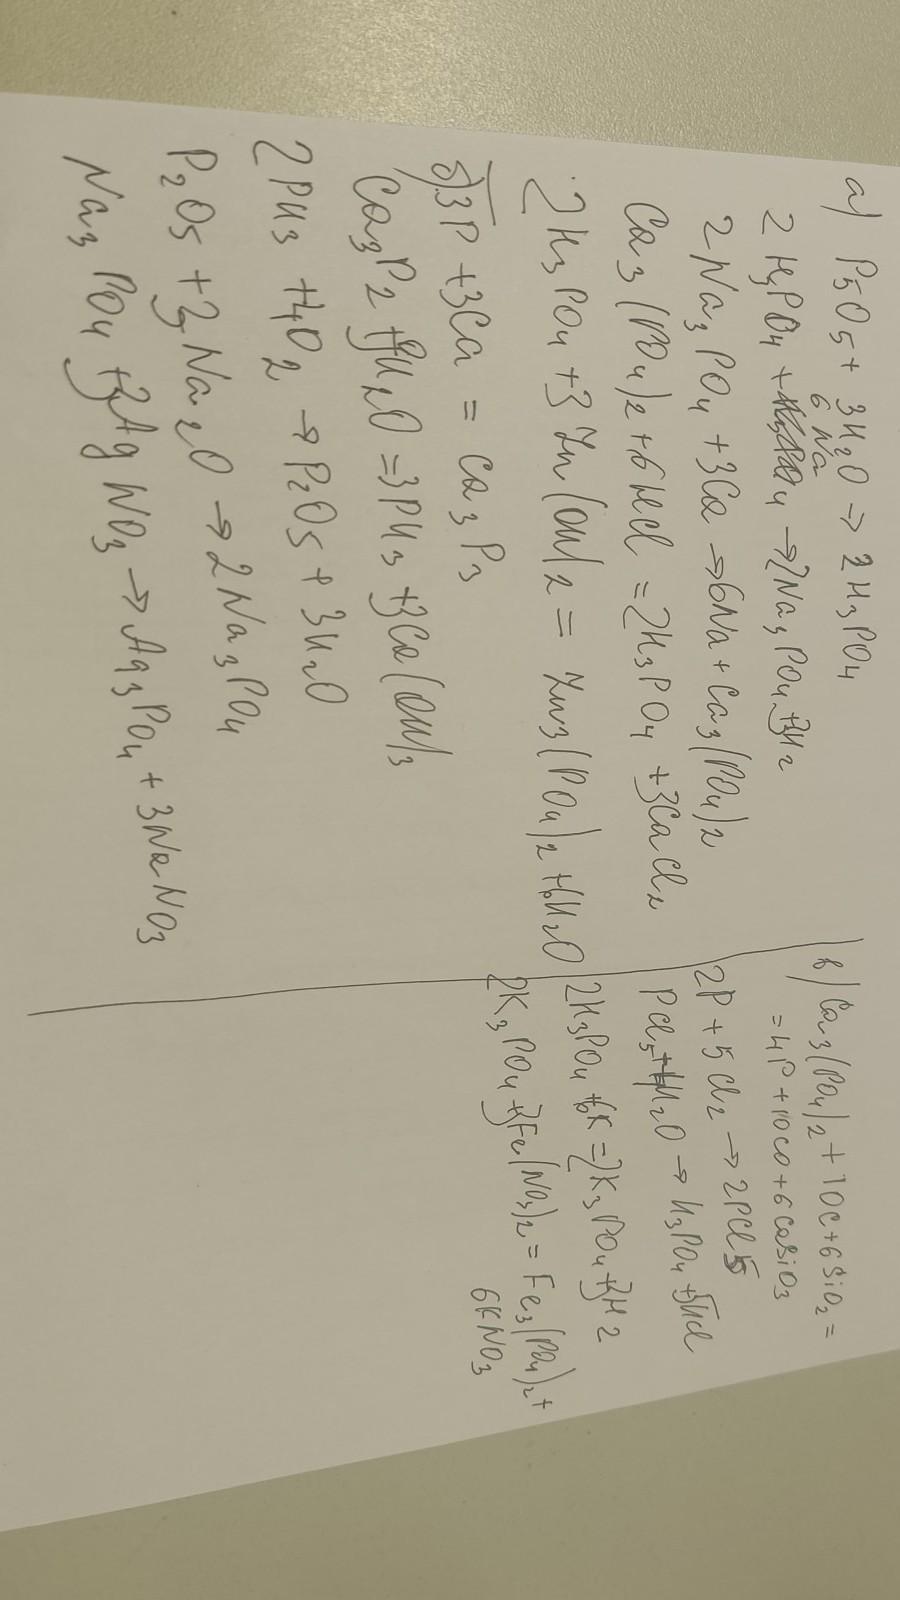 а) P5O5 + 3H2O → 2H3PO4
2H3PO4 + 6Na → 2Na3PO4 + 3H2
2Na3PO4 + 3Ca → 6Na + Ca3(PO4)2
Ca3(PO4)2 + 6HCl = 2H3PO4 + 3CaCl2
2H3PO4 + 3Zn(OH)2 = Zn3(PO4)2 + 6H2O
б) 3P + 3Ca = Ca3P3
Ca3P2 + H2O = 3PH3 + 3Ca(OH)3
2PH3 + 4O2 → P2O5 + 3H2O
P2O5 + 3Na2O → 2Na3PO4
Na3PO4 + 3AgNO3 → Ag3PO4 + 3NaNO3
в) Ca3(PO4)2 + 10C + 6SiO2 =
= 4P + 10CO + 6CaSiO3
2P + 5Cl2 → 2PCl5
PCl5 + 4H2O → H3PO4 + 5HCl
2H3PO4 + 6K = 2K3PO4 + 3H2
2K3PO4 + 3Fe(NO3)2 = Fe3(PO4)2 +
6KNO3